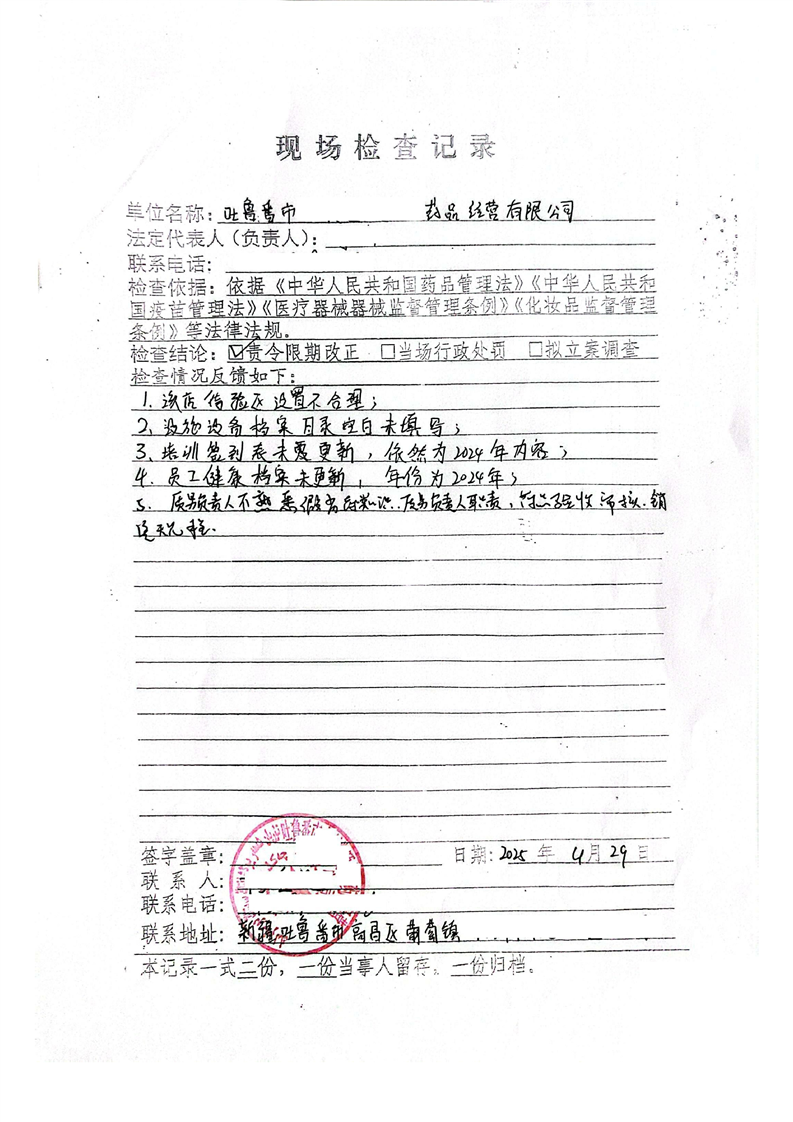 现场检查记录
单位名称：吐鲁番市 药品经营有限公司
法定代表人（负责人）：
联系电话：
检查依据：依据《中华人民共和国药品管理法》《中华人民共和
国疫苗管理法》《医疗器械器械监督管理条例》《化妆品监督管理
条例》等法律法规.
检查结论：☑责令限期改正 □当场行政处罚 □拟立案调查
检查情况反馈如下：
1. 该店待验区设置不合理；
2. 设施设备档案目录空白未填写；
3. 培训签到表未更新，依然为2024年内容；
4. 员工健康档案未更新，年份为2024年；
5. 质量负责人不熟悉 质量负责人职责， 销
签字盖章： 日期：2025年4月29日
联系人：
联系电话：
联系地址：新疆吐鲁番市高昌区葡萄镇
本记录一式二份，一份当事人留存。一份归档。